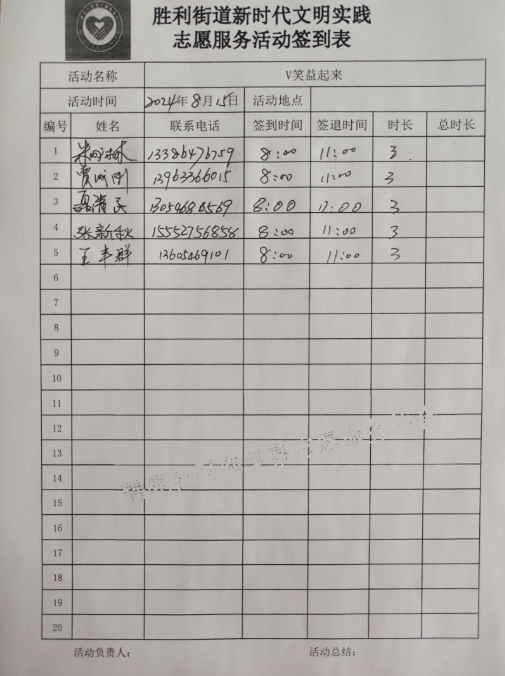 胜利街道新时代文明实践
志愿服务活动签到表
活动名称 V笑益起来
活动时间 2024年8月15日 活动地点
编号 姓名 联系电话 签到时间 签退时间 时长 总时长
1 13386476759 8:00 11:00 3
2 贾成刚 13963366015 8:00 11:00 3
3 13054686569 8:00 11:00 3
4 张新秋 15552756858 8:00 11:00 3
5 王丰群 13605469101 8:00 11:00 3
6
7
8
9
10
11
12
13
14
15
16
17
18
19
20
活动负责人： 活动总结：